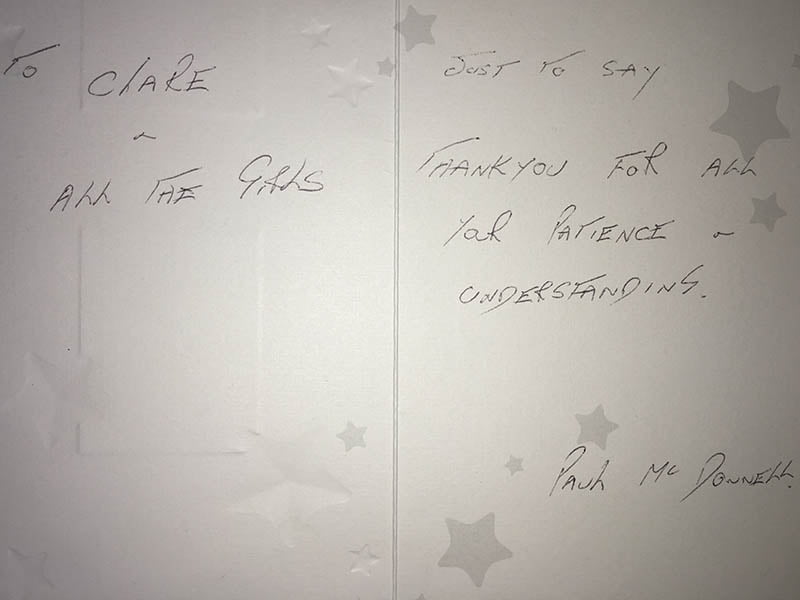 To CLARE
&
ALL THE GIRLS
JUST TO SAY
THANKYOU FOR ALL
YOUR PATIENCE &
UNDERSTANDING.
PAUL Mc DONNELL.